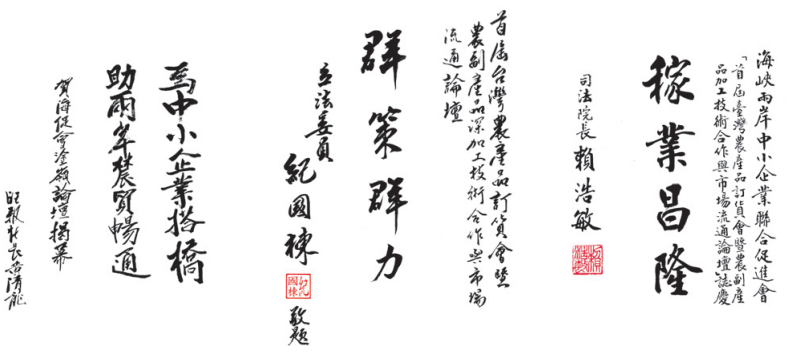 海峽兩岸中小企業聯合促進會
「首屆臺灣農產品訂貨會暨農副產
品加工技術合作與市場流通論壇」誌慶
稼業昌隆
司法院長 賴浩敏
首屆台灣農產品訂貨會暨
農副產品深加工技術合作與市場
流通論壇
群策群力
立法委員 紀國棟 敬題
紀國棟
為中小企業搭橋
助兩岸農貿暢通
賀海促會受頒論壇揭幕
旺報社長黃清龍